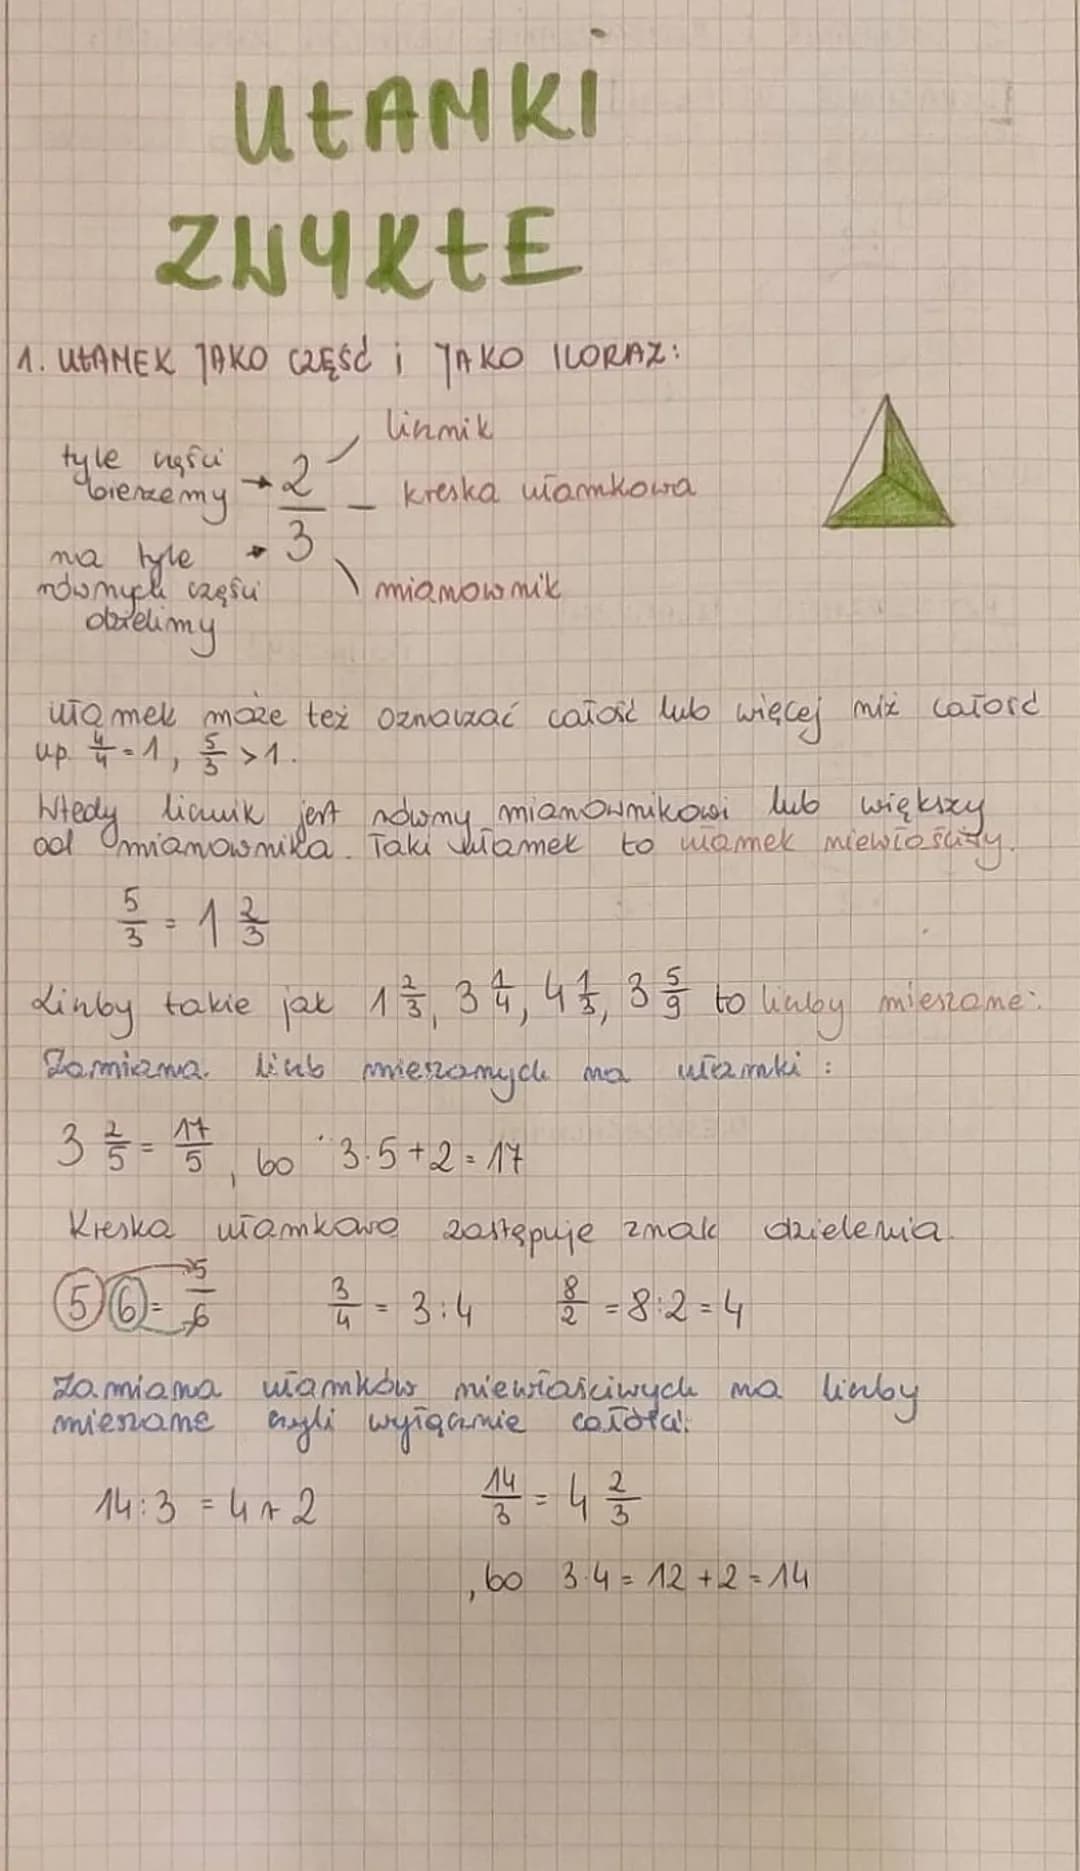 UŁAMKI
ZWYKŁE
1. UŁAMEK JAKO CZĘŚĆ i JAKO ILORAZ:
licznik
tyle części bierzemy → 2
— kreska ułamkowa
na tyle równych części dzielimy → 3
mianownik
Ułamek może też oznaczać całość lub więcej niż całość
np. 4/4 = 1, 5/3 > 1.
Wtedy licznik jest równy mianownikowi lub większy
od mianownika. Taki ułamek to ułamek niewłaściwy.
5/3 = 1 2/3
Liczby takie jak 1 2/3, 3 1/4, 4 1/3, 3 5/9 to liczby mieszane.
Zamiana liczb mieszanych na ułamki:
3 2/5 = 17/5, bo 3·5+2=17
Kreska ułamkowa zastępuje znak dzielenia.
5 6 = 5/6 3/4 = 3:4 8/2 = 8:2 = 4
Zamiana ułamków niewłaściwych na liczby
mieszane czyli wyłącznie całości:
14:3 = 4 r 2 14/3 = 4 2/3
, bo 3·4 = 12 + 2 = 14